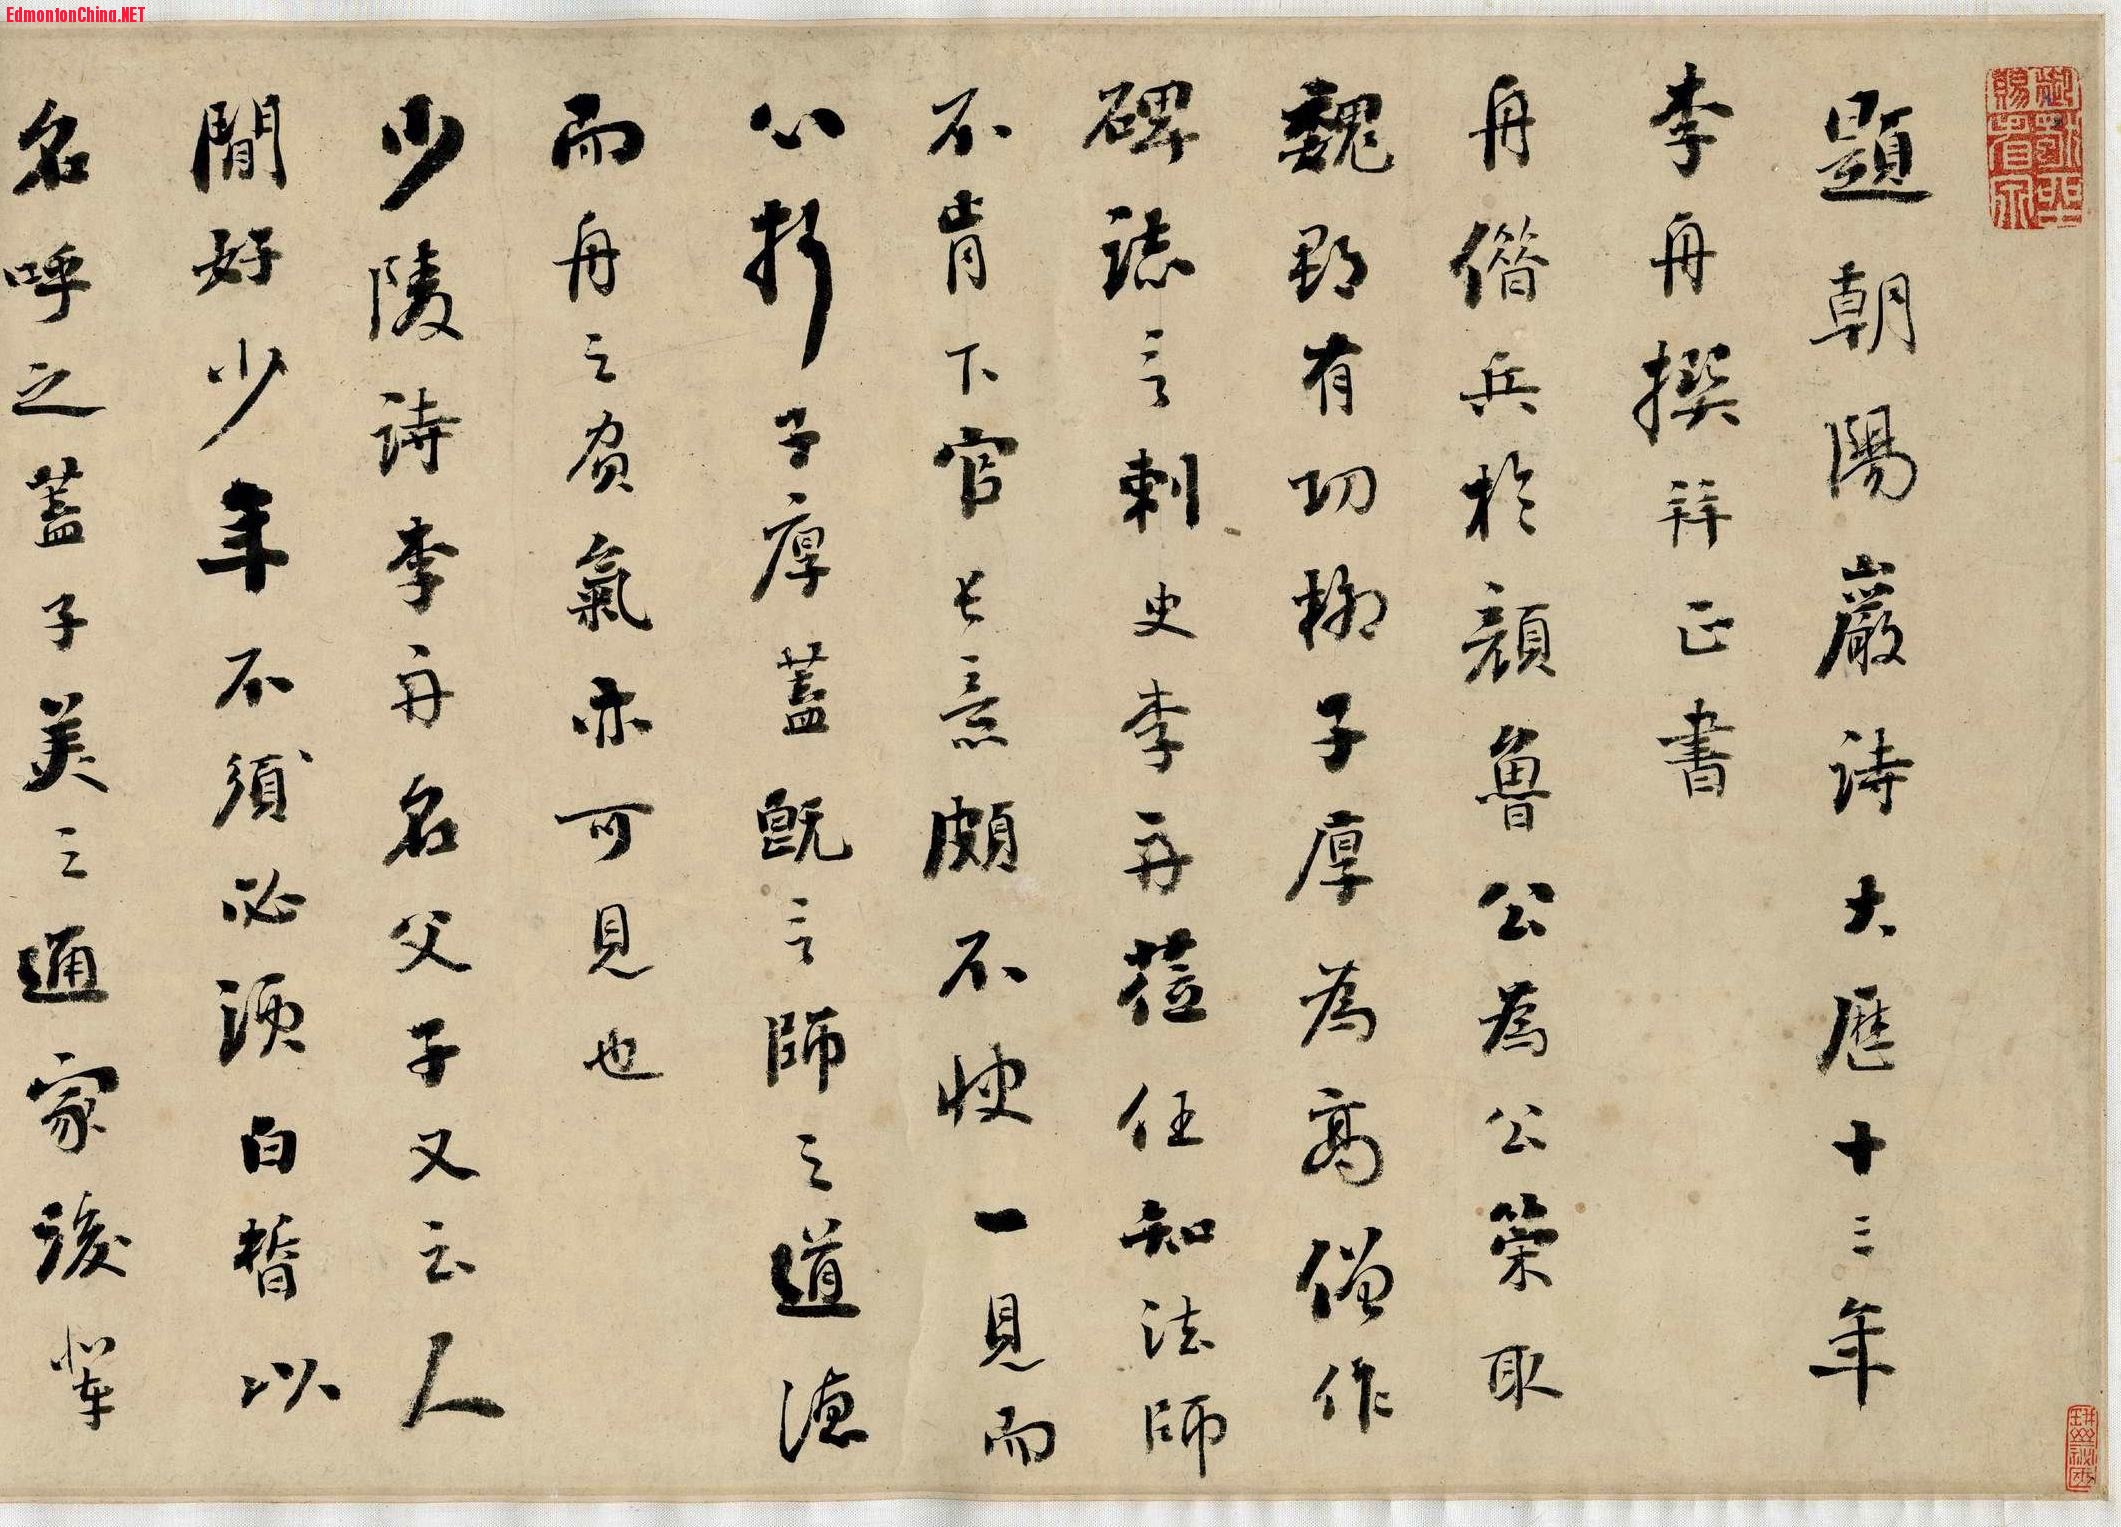 EdmontonChina.NET
題朝陽巖诗大歷十三年
李舟撰并正書
舟偕兵於顔魯公為公榮取
魏郡有功柳子厚為高僧作
碑誌言刺史李舟莅任知法師
不肯下官長意頗不快一見而
心折子厚蓋既言師之道德
而舟之負氣亦可見也
少陵詩李舟名父子又云人
間好少年不須必須白晳以
名呼之蓋子美之通家後輩